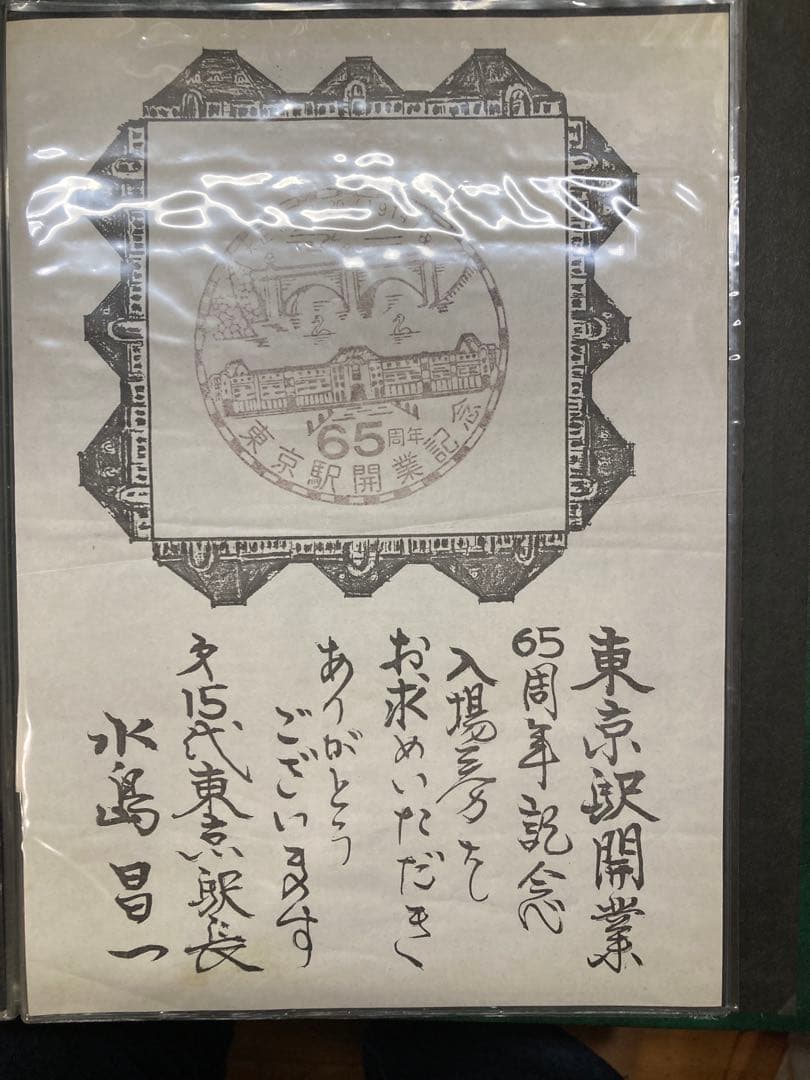 65周年
東京駅開業記念
東京駅開業
65周年記念
入場券を
お求めいただき
ありがとう
ございます
第15代東京駅長
水島昌一